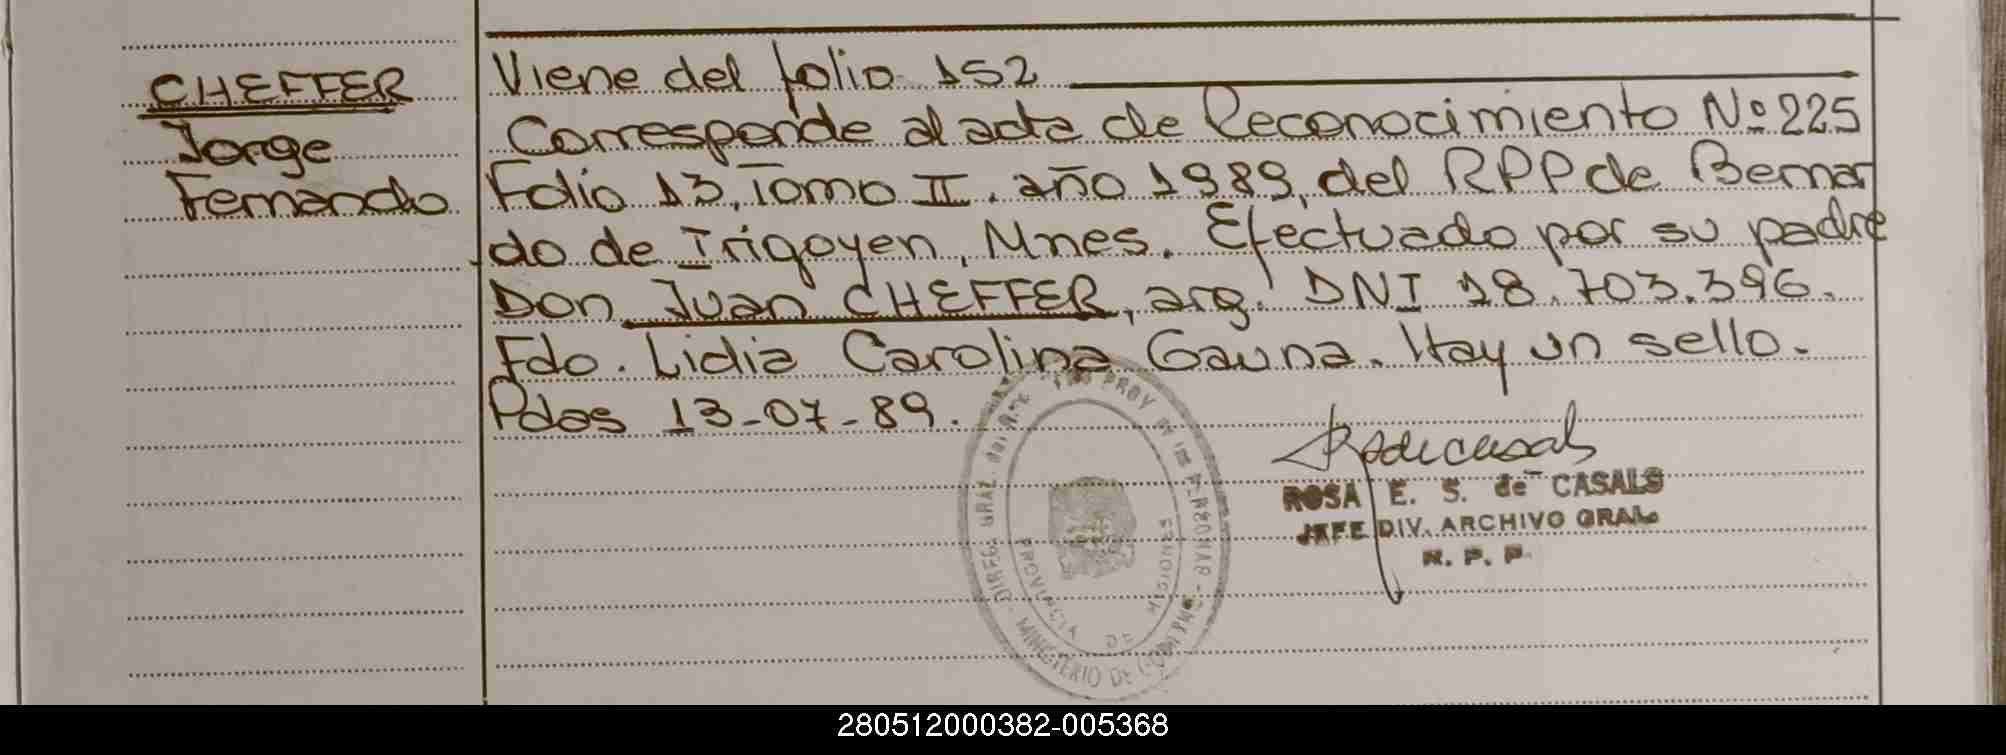 CHEFFER
Jorge
Fernando
Viene del folio 152
Corresponde al acta de Reconocimiento Nº 225
Folio 13, Tomo II, año 1989, del RPP de Bernar
do de Irigoyen, Mnes. Efectuado por su padre
Don Juan CHEFFER, arg. DNI 18.703.396.
Fdo. Lidia Carolina Gauna. Hay un sello.
Pdas 13-07-89.
ROSA E. S. de CASALS
JEFE DIV. ARCHIVO GRAL
R. P. P.
DIREC. GRAL. PROV DE LAS PERSONAS
MINISTERIO DE
PROVINCIA DE MISIONES
280512000382-005368